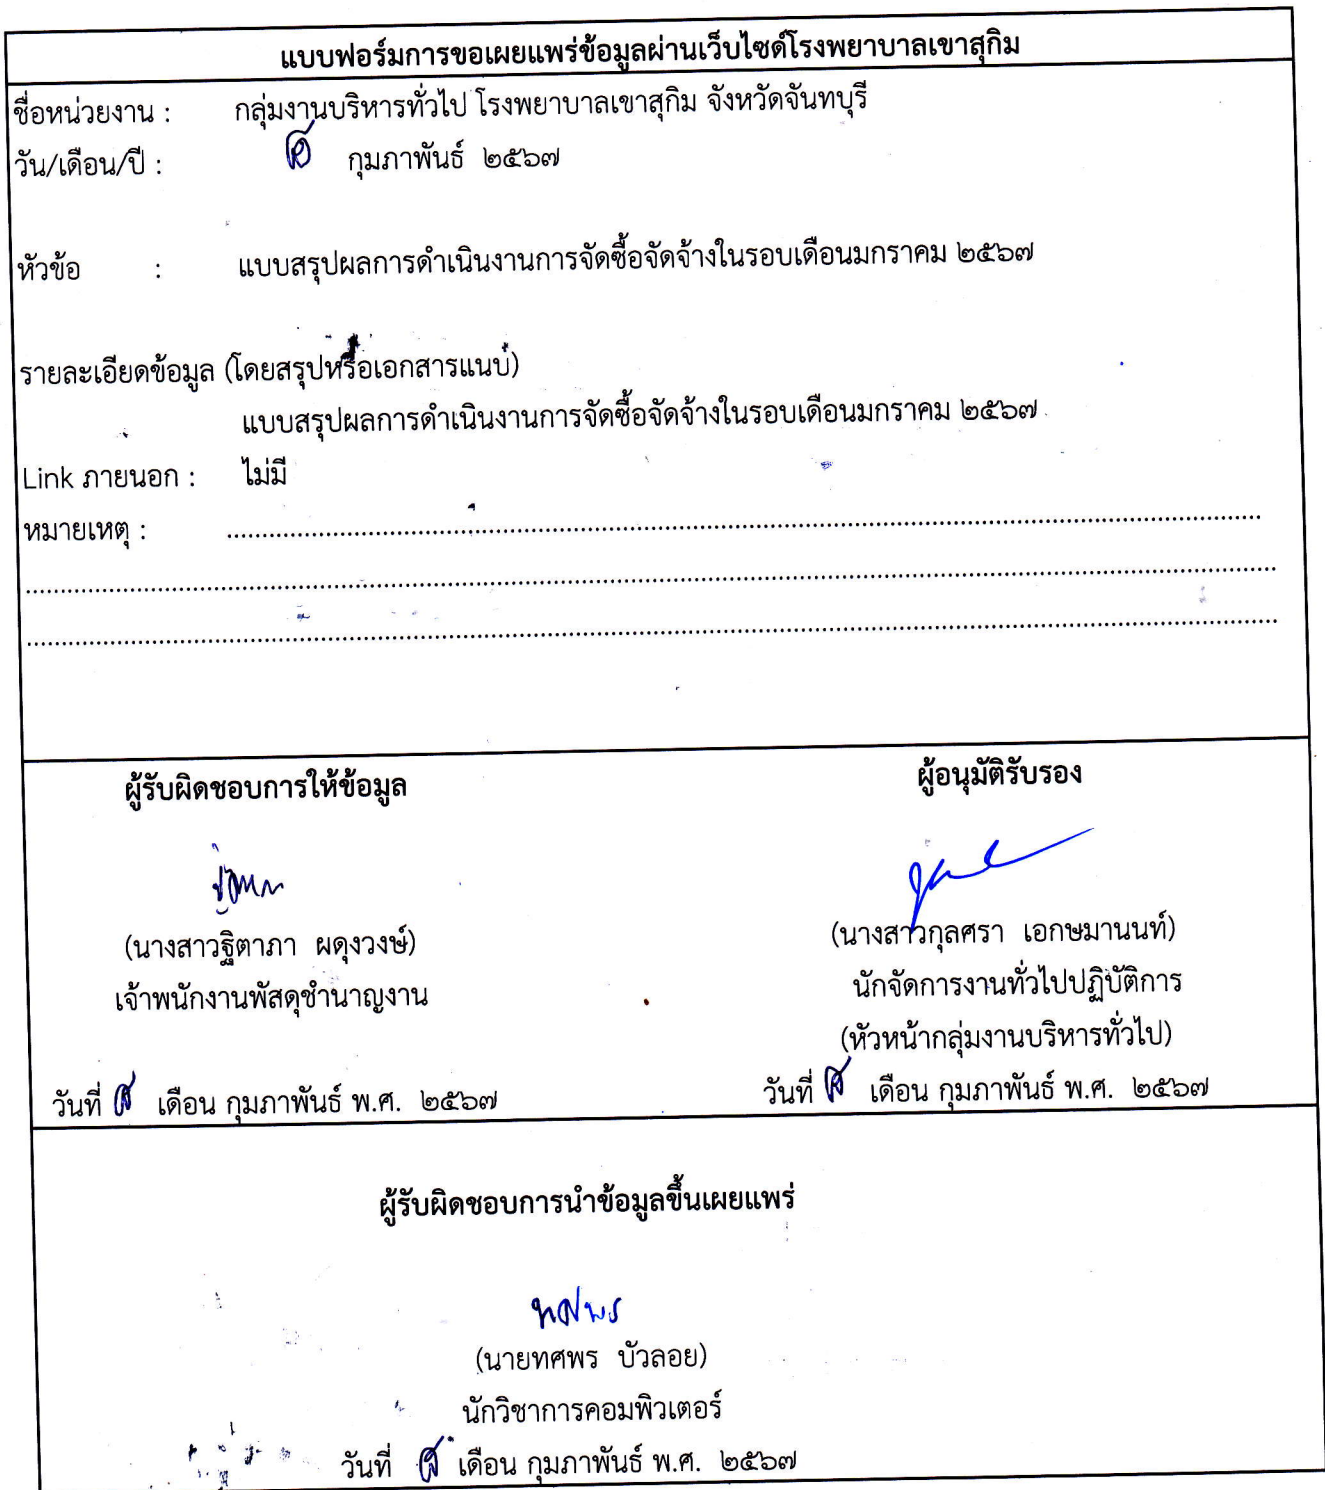 แบบฟอร์มการขอเผยแพร่ข้อมูลผ่านเว็บไซด์โรงพยาบาลเขาสุกิม
ชื่อหน่วยงาน : กลุ่มงานบริหารทั่วไป โรงพยาบาลเขาสุกิม จังหวัดจันทบุรี
วัน/เดือน/ปี : กุมภาพันธ์ ๒๕๖๗
หัวข้อ : แบบสรุปผลการดำเนินงานการจัดซื้อจัดจ้างในรอบเดือนมกราคม ๒๕๖๗
รายละเอียดข้อมูล (โดยสรุปหรือเอกสารแนบ)
แบบสรุปผลการดำเนินงานการจัดซื้อจัดจ้างในรอบเดือนมกราคม ๒๕๖๗
Link ภายนอก : ไม่มี
หมายเหตุ :
ผู้รับผิดชอบการให้ข้อมูล
(นางสาวฐิตาภา ผดุงวงษ์)
เจ้าพนักงานพัสดุชำนาญงาน
วันที่ เดือน กุมภาพันธ์ พ.ศ. ๒๕๖๗
ผู้อนุมัติรับรอง
(นางสาวกุลศรา เอกษมานนท์)
นักจัดการงานทั่วไปปฏิบัติการ
(หัวหน้ากลุ่มงานบริหารทั่วไป)
วันที่ เดือน กุมภาพันธ์ พ.ศ. ๒๕๖๗
ผู้รับผิดชอบการนำข้อมูลขึ้นเผยแพร่
ทศพร
(นายทศพร บัวลอย)
นักวิชาการคอมพิวเตอร์
วันที่ เดือน กุมภาพันธ์ พ.ศ. ๒๕๖๗